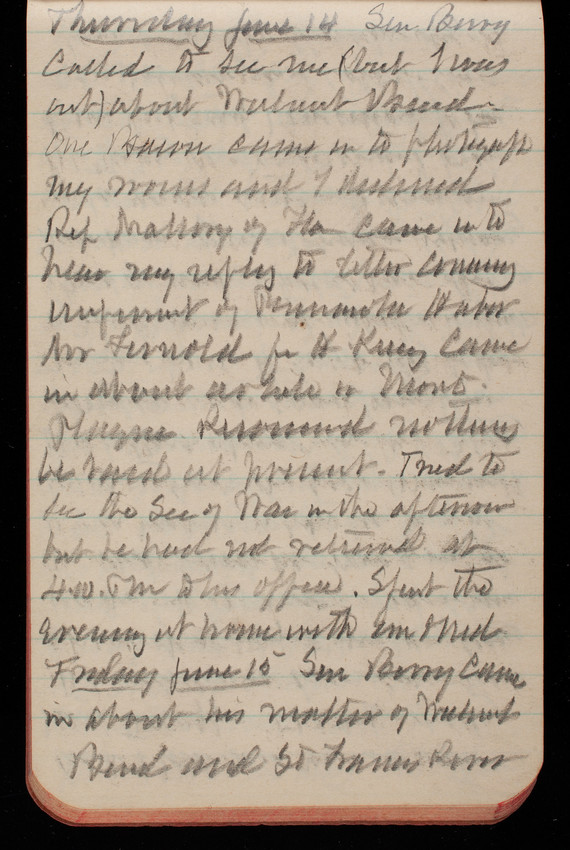 Thursday June 14 Sen Berry
Called to see me (but I was
out) about Walnut Bend.
One Bacon came in to photograph
my rooms and I declined
Rep Mallory of Fla came in to
hear my reply to letter
of Pensacola Harbor
Mr came
in about in Mont.
nothing
be said at present. Tried to
see the Sec of War in the afternoon
but he had not returned at
4.00. PM to his office. Spent the
evening at home with Em
Friday June 15 Sen Berry Came
in about his matter of Walnut
Bend and St Francis River